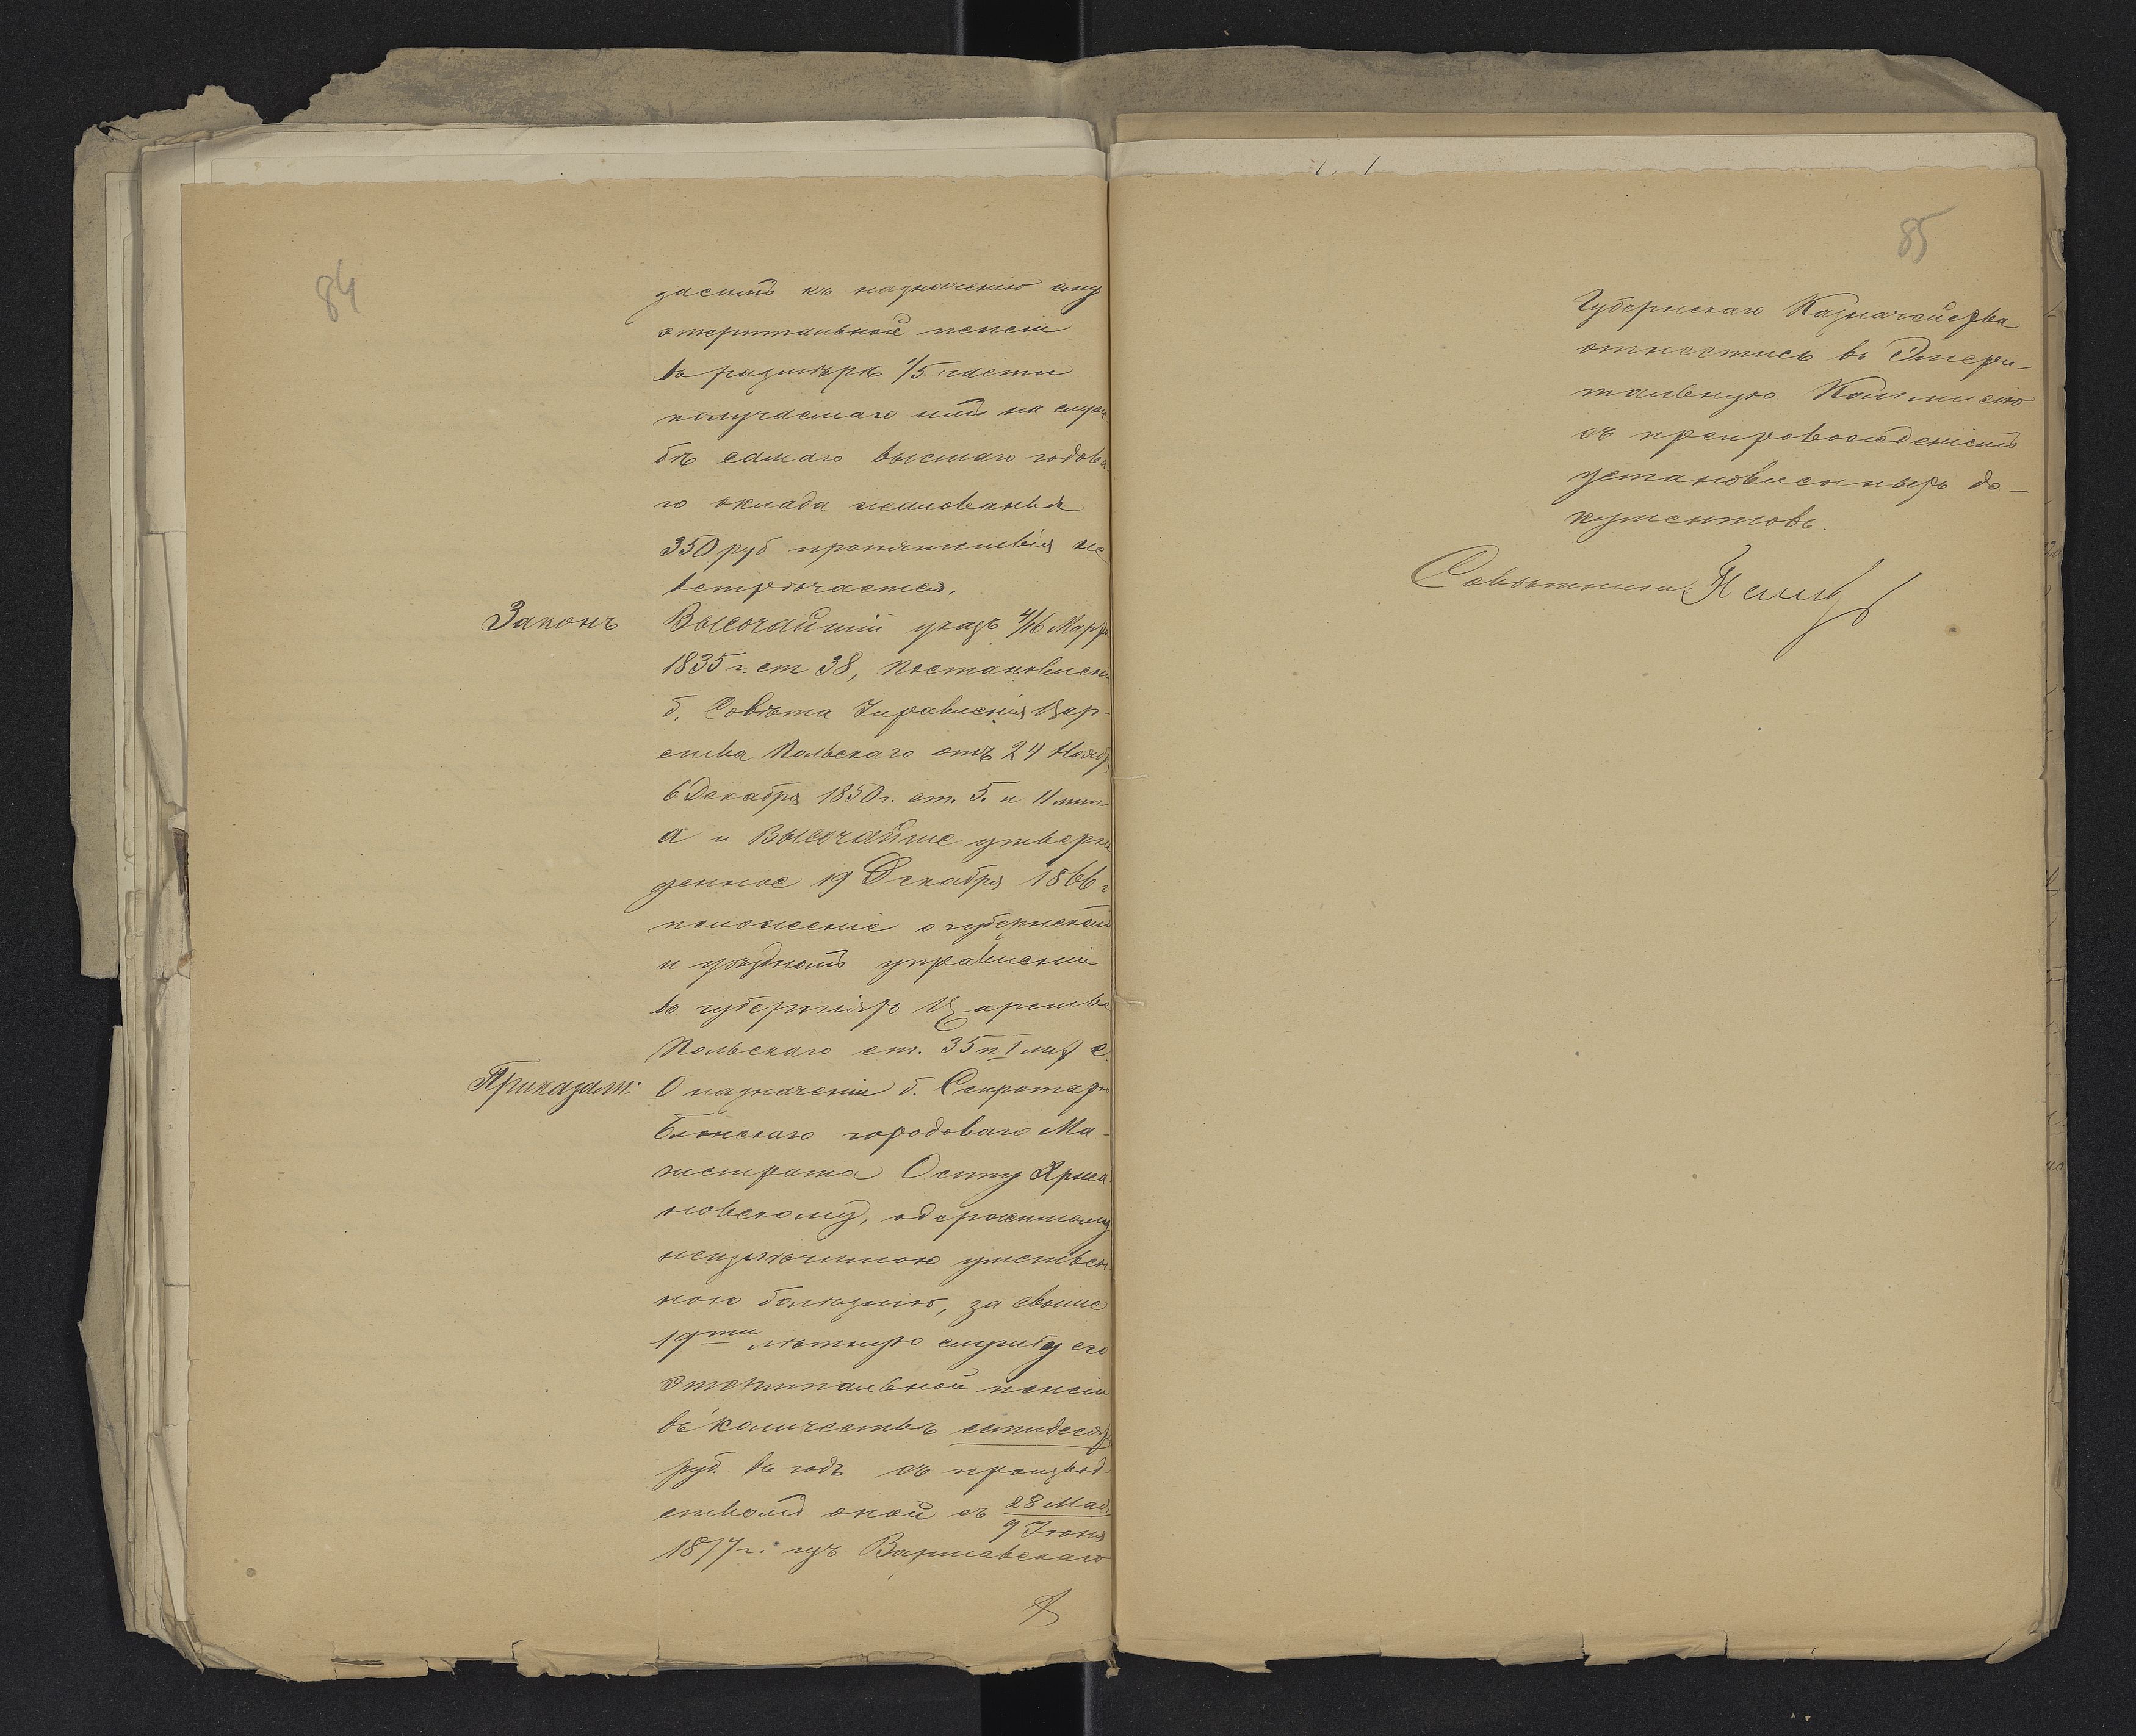 84
гасить къ назначенію ему
эмеритальной пенсіи
въ размѣрѣ 1/5 части
получаемаго имъ на служ
бѣ самаго высшаго годова
го оклада жалованья
350 руб препятствія не
встрѣчается.
Законъ Высочайшій указъ 4/16 Марта
1835 г. ст 38, Постановлен
б. Совѣта Управленія Цар-
ства Польскаго отъ 24 Нояб
6 Декабря 1850 г. ст. 5. и 11 лит
а и Высочайше утверж
денное 19 Декабря 1866 г
положеніе о губернскомъ
и уѣздномъ управленіи
въ губерніяхъ Царства
Польскаго ст. 35 п I лит е.
Приказали: О назначеніи б. Секретарю
Блонскаго городоваго Ма-
гистрата Осипу
новскому, одержимому
неизлѣчимою умствен
ною болѣзнію, за свыше
19ти лѣтнюю службу его
эмеритальной пенсіи
въ количествѣ семидесят
руб. въ годъ съ производ
ствомъ оной съ 28 Мая
9 Іюня
1877 г. изъ Варшавскаго
85
Губернскаго Казначейства
отнестись въ Эмери-
тальную Коммисію
съ препровожденіемъ
установленныхъ до-
кументовъ.
Совѣтникъ: